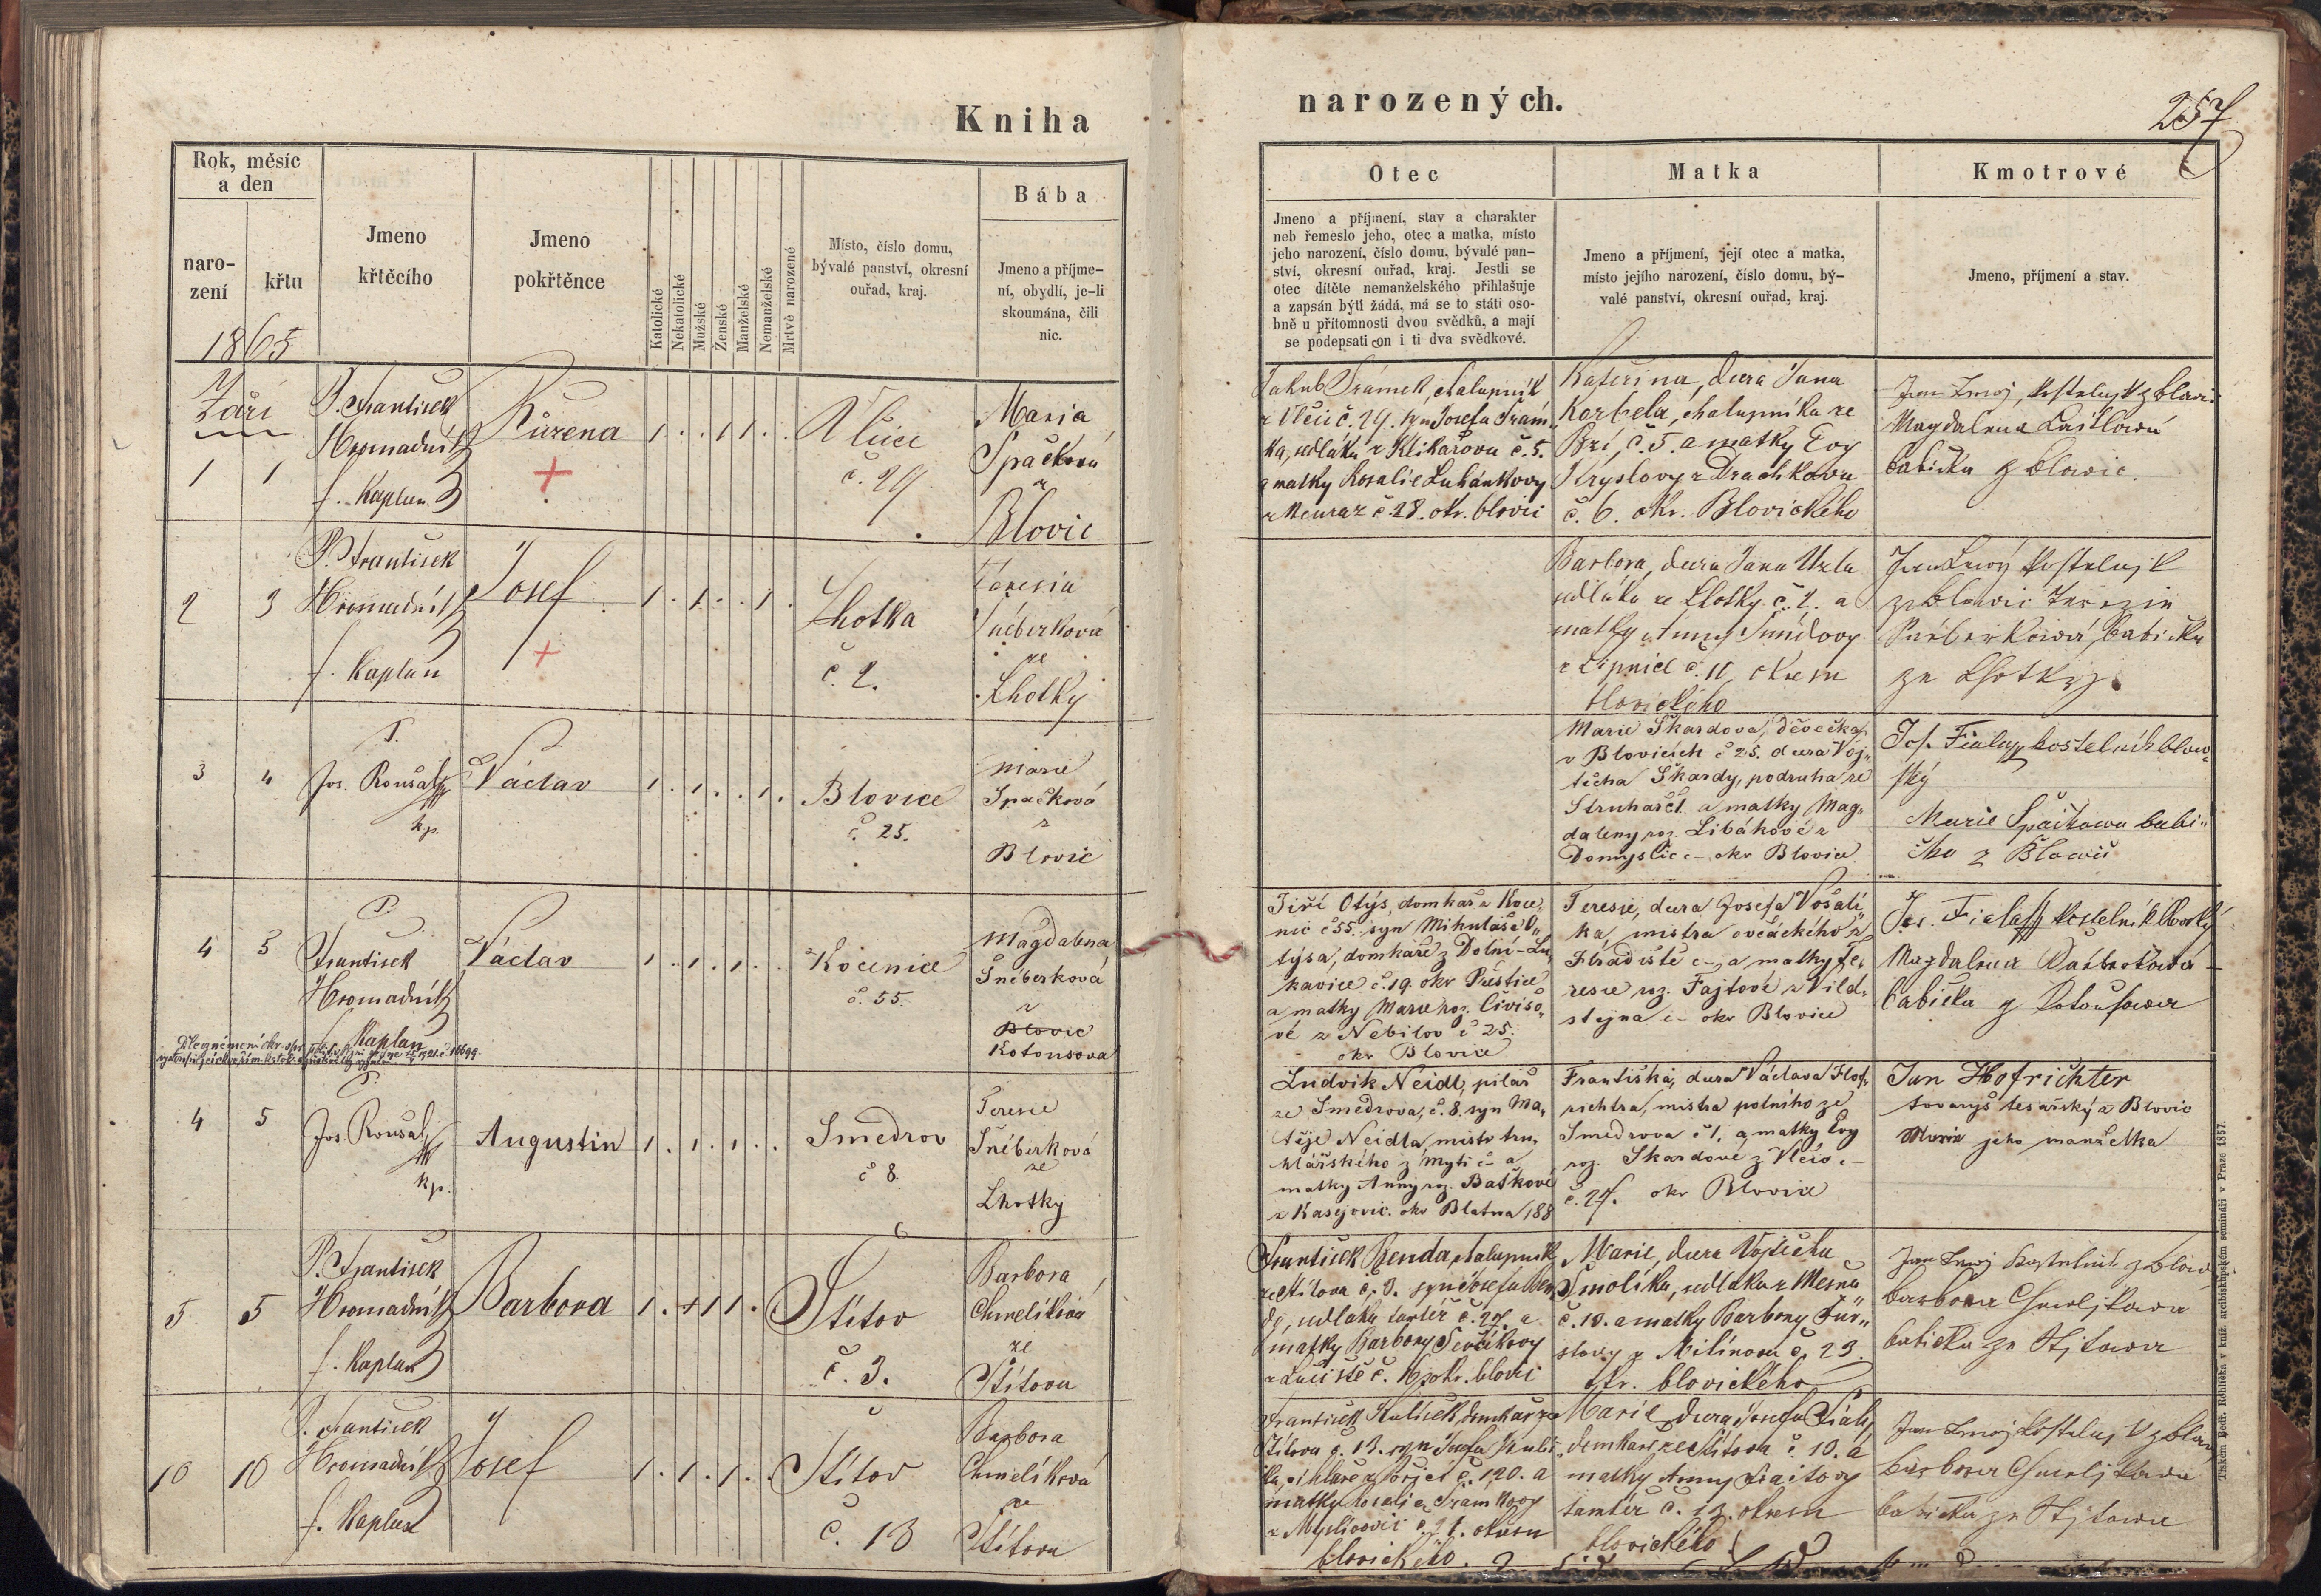 Kniha
narozených.
257
Rok, měsíc
a den
naro-
zení
křtu
1865
Jmeno
křtěcího
Jmeno
pokřtěnce
Katolické
Nekatolické
Mužské
Ženské
Manželské
Nemanželské
Mrtvě narozené
Místo, číslo domu,
bývalé panství, okresní
ouřad, kraj.
Bába
Jmeno a příjme-
ní, obydlí, je-li
skoumána, čili
nic.
Otec
Jmeno a příjmení, stav a charakter
neb řemeslo jeho, otec a matka, místo
jeho narození, číslo domu, bývalé pan-
ství, okresní ouřad, kraj. Jestli se
otec dítěte nemanželského přihlašuje
a zapsán býti žádá, má se to státi oso-
bně u přítomnosti dvou svědků, a mají
se podepsati on i ti dva svědkové.
Matka
Jmeno a příjmení, její otec a matka,
místo jejího narození, číslo domu, bý-
valé panství, okresní ouřad, kraj.
Kmotrové
Jmeno, příjmení a stav.
Září
1 1
P. František
Hromadník
f. Kaplan
Růžena
1 . . 1 1 . .
Vlčice
č. 29
Maria
Špačková
z
Blovic
Jakub Šrámek, chalupník
z Vlčic č. 29. syn Josefa Šrám
ka, sedláka z Klikařova č. 5.
a matky Rosalie Luhánkovy
z Měcuraz č. 28. okr. blovic
Kateřina, dcera Jana
Korbela, chalupníka ze
Bzí, č. 5. a matky Evy
Kryslovy z Drachkova
č. 6. okr. Blovického
kostelnjk z blovic
Magdalena
babička z blowic.
2 3
P. František
Hromadník
f. Kaplan
Josef
1 . 1 . . 1 .
Lhotka
č. 2.
Teresia
Šnéberková
ze
Lhotky
Barbora, dcera Jana Uzla
sedláka ze Lhotky č. 2. a
matky Anny Šmídovy
z Lipnice č. 11, okresu
blovického
kostelnjk
z blowic Terezie
babička
ze Lhotky
3 4
P.
Jos. Roušal
kp.
Václav
1 . 1 . . 1 .
Blovice
č. 25.
Marie
Špačková
z
Blovic
Marie Škardova, děvečka
v Blovicích č 25. dcera Voj„
těcha Škardy, podruha ze
Struhař č1. a matky Mag„
daleny roz. Libákové z
Domyslic č– okr Blovice.
Jos. Fiala kostelník blow„
ský
Marie Špačkowa babi„
čka z Blowic
4 5
P.
František
Hromadník
f. Kaplan
Václav
1 . 1 . 1 . .
Kocenice
č. 55.
Magdalena
Šneberková
z
Blovic
Kotousova
Jiří Otýs, domkař z Koce„
nic č 55. syn Mikuláše O„
týsa, domkáře z Dolní–Lu„
kavice č. 19 okr Přeštice
a matky Marie roz. Čivišo„
vé z Nebílov č 25.
okr Blovice
Teresie, dcera Josefa Vošalí„
ka, mistra ovčáckého z
Hradiště č–, a matky Te„
resie roz. Fajtové z Vild„
štejna č– okr Blovice
Jos. Fiala kostelník blovský
Magdalena
babička z Kotousowa
4 5
P.
Jos. Roušal
kp.
Augustin
1 . 1 . 1 . .
Smedrov
č 8.
Teresie
Šnéberková
ze
Lhotky
Ludvik Neidl, pilař
ze Smedrova, č. 8. syn Ma„
těje Neidla, mistr tru„
hlářského z Mytí č– a
matky Anny roz. Baškové
z Kasejovic. okr Blatna 188
Františka, dcera Václava Hof„
richtra, mistra polního ze
Smedrova č 1, a matky Evy
roz. Škardové z Vlčic –
č. 27. okr Blovice
Jan Hofrichter
tovaryš tesařský z Blovic
Marie jeho manželka
5 5
P. František
Hromadník
f. Kaplan
Barbora
1 . + 1 1 . .
Štítov
č. 3.
Barbora
Chmelíková
ze
Štítova
František Benda, chalupník
ze Štítova č. 3. syn Josefa Ben
dy, sedláka tamtéž č. 27. a
matky Barbory Ševčíkovy
č. 16 okr. blovic
Marie, dcera Vojtěcha
Smolíka, sedláka z Mešna
č. 10. a matky Barbory
z Milínova č. 23.
okr. blovického
kostelník z blowic
barbora Chmeljkowa
babička ze Stjtowa
10 10
P. František
Hromadník
f. Kaplan
Josef
1 . 1 . 1 . .
Štítov
č. 13
Barbora
Chmelíková
ze
Štítova
František domkař ze
Štítova č. 13. syn Josefa
č. 120. a
matky Rosalie Šrámkovy
z Myslivovic č. 21. okresu
blovického.
Marie, dcera Josefa Fialy,
domkáře ze Štítova č. 10. a
matky Anny
tamtéž č. 13. okresu
blovického
kostelnjk z blow
barbora Chmeljkowa
babička ze Stjtowa
Tiskem Bedř. Rohlíčka v kníž. arcibiskupském semináři v Praze 1857.